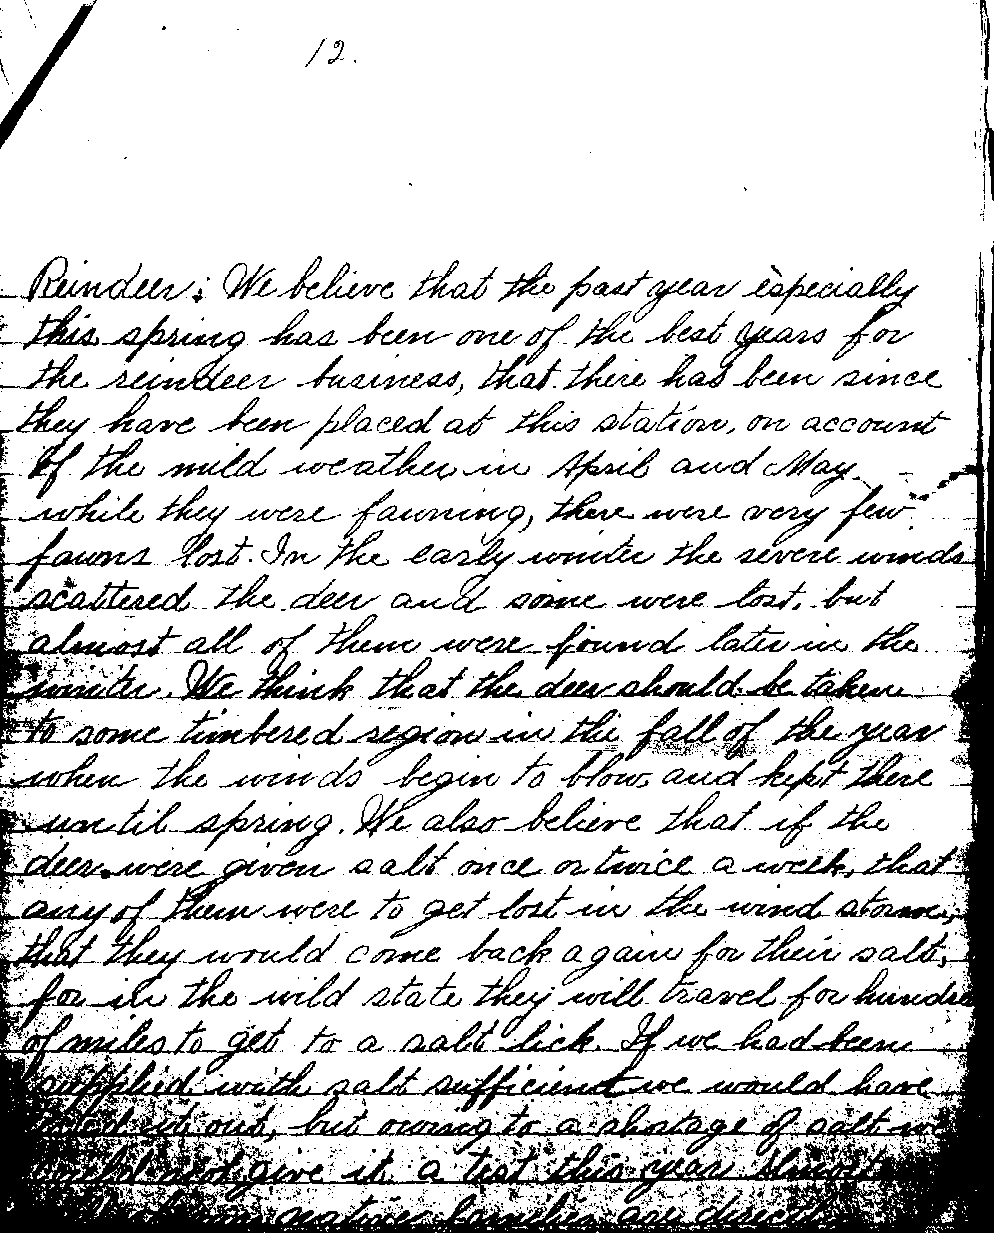 12.
Reindeer: We believe that the past year especially
this spring has been one of the best years for
the reindeer business, that there has been since
they have been placed at this station, on account
of the mild weather in April and May.
while they were fawning, there were very few
fawns lost. In the early winter the severe winds
scattered the deer and some were lost, but
almost all of them were found later in the
winter. We think that the deer should be taken
to some timbered region in the fall of the year
when the winds begin to blow, and kept there
until spring. We also believe that if the
deer were given salt once or twice a week, that
any of them were to get lost in the wind storm,
that they would come back again for their salt,
for in the wild state they will travel for hundre
of miles to get to a salt lick. If we had been
supplied with salt sufficient we would have
it out, but owing to a shortage of salt we
could not give it a test this year. Almost
native families are